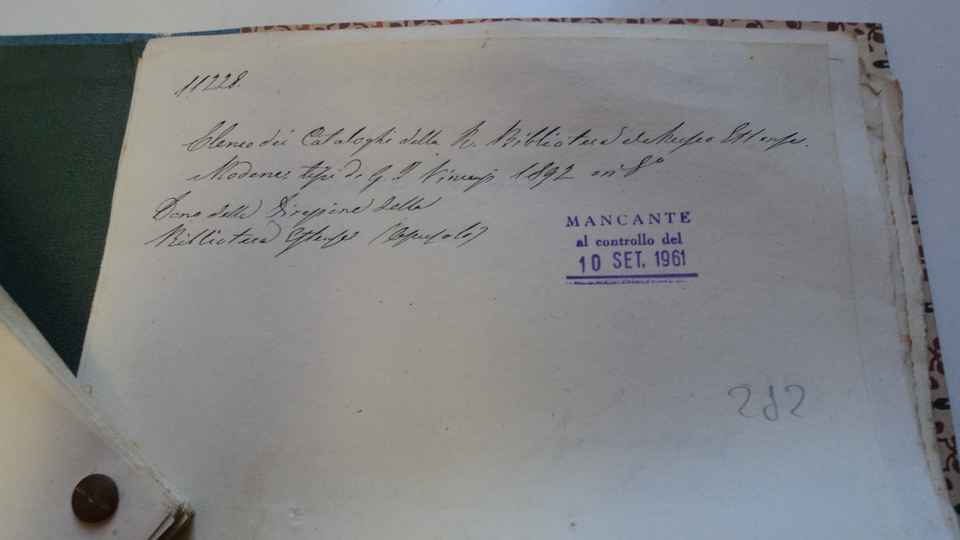 11228.
Elenco dei Cataloghi della R. Biblioteca Estense.
Modena tipi di G. T. Vincenzi 1892 in 8º
Dono della Direzione della
Biblioteca Estense (Opuscolo)
MANCANTE
al controllo del
10 SET. 1961
282